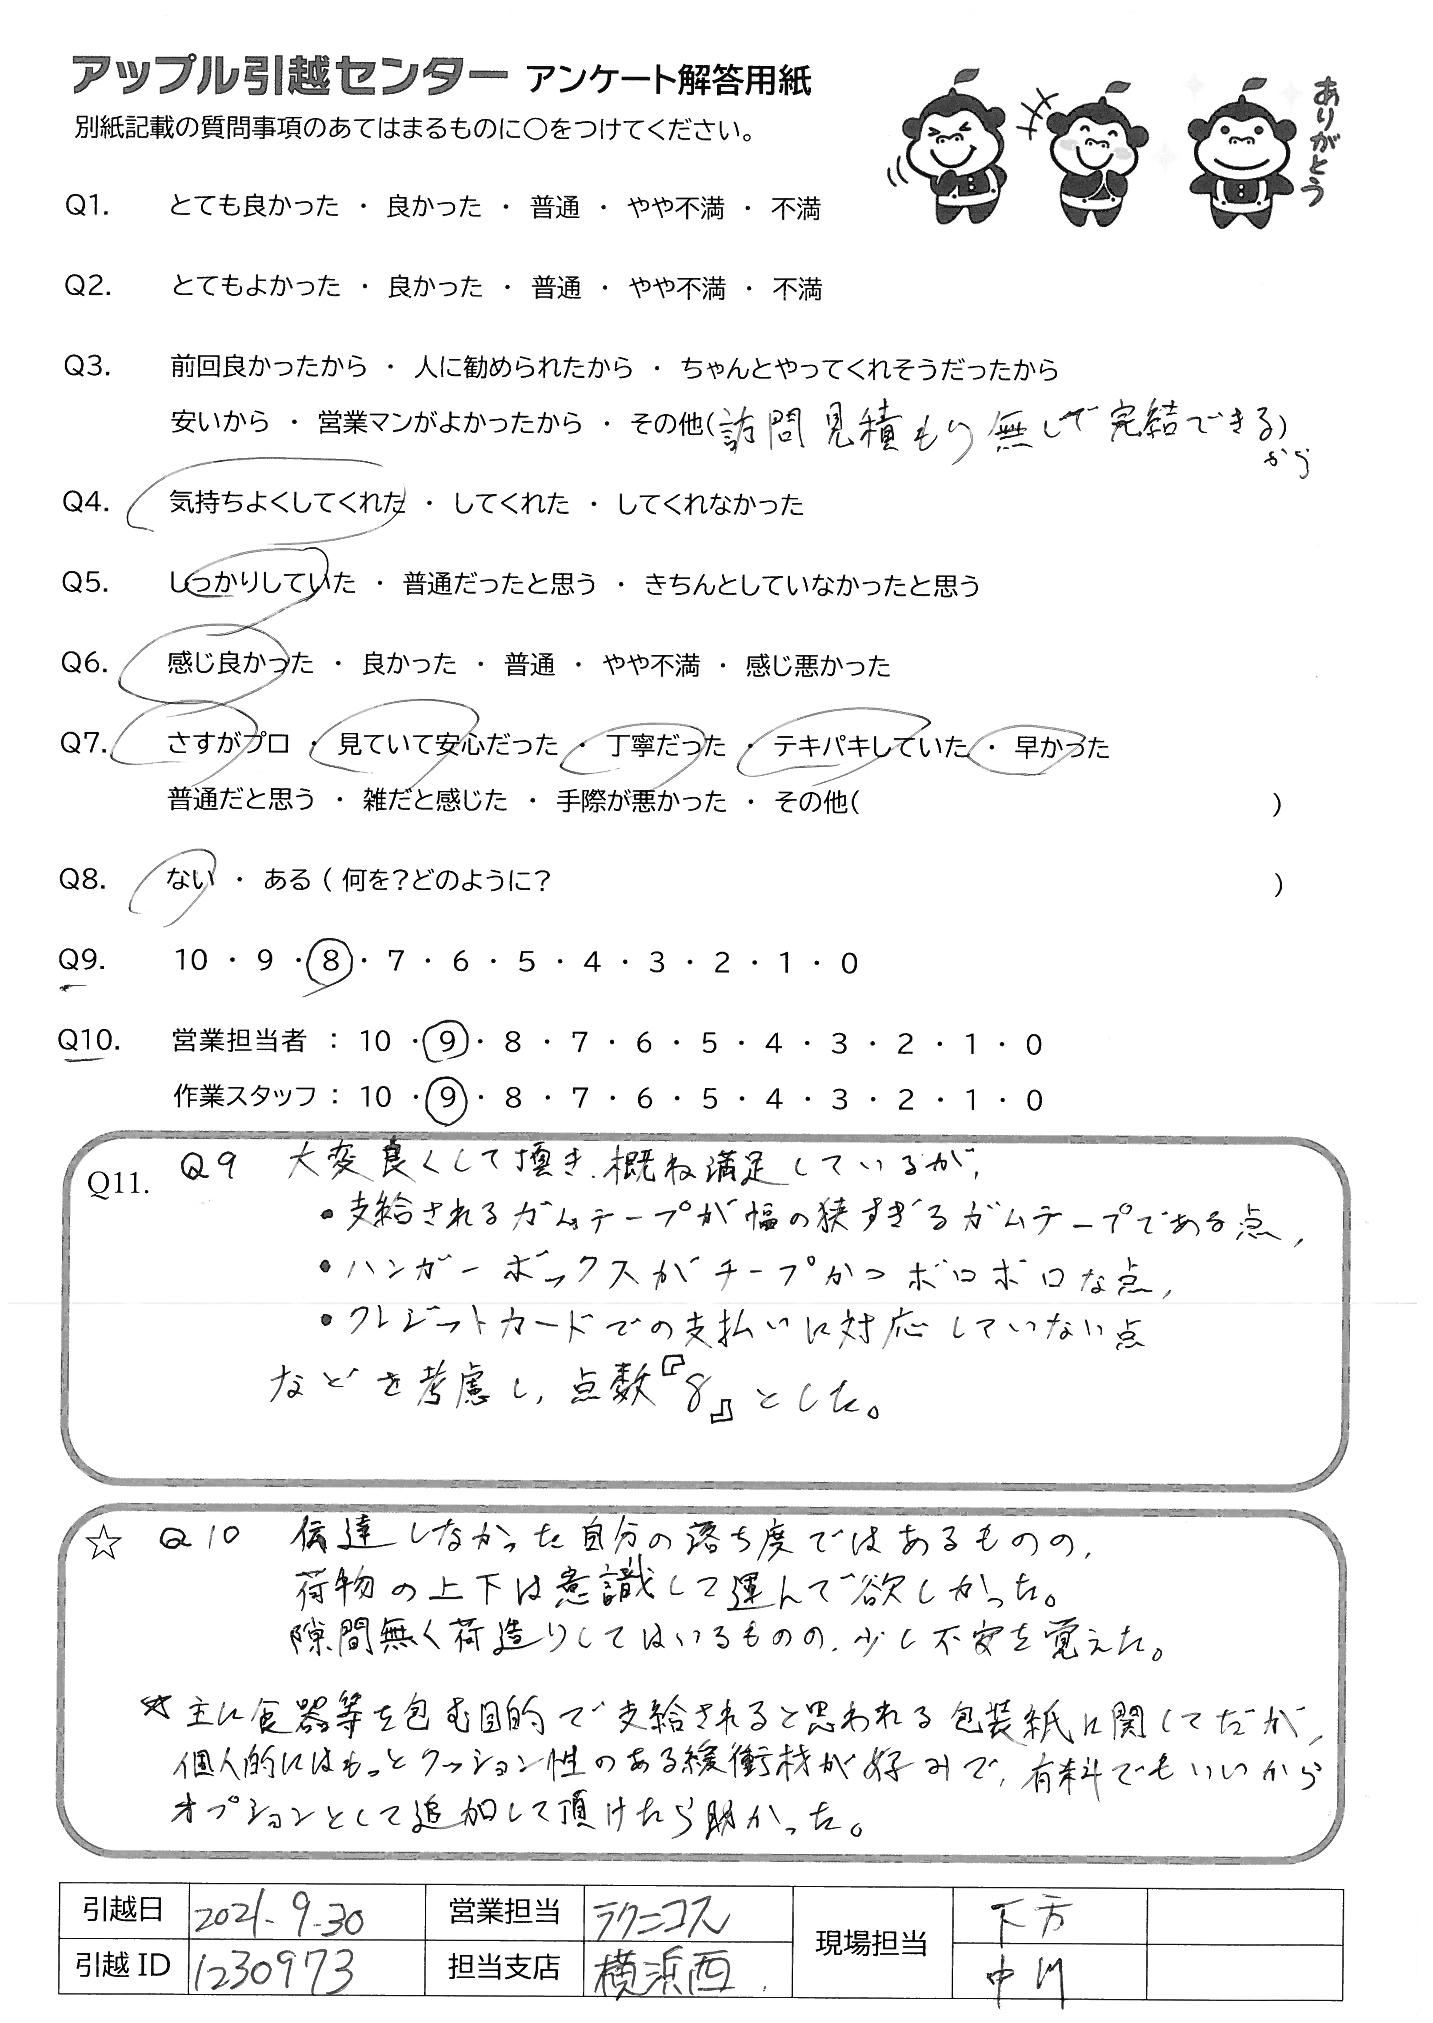 アップル引越センター アンケート解答用紙
別紙記載の質問事項のあてはまるものに○をつけてください。
ありがとう
Q1. とても良かった ・ 良かった ・ 普通 ・ やや不満 ・ 不満
Q2. とてもよかった ・ 良かった ・ 普通 ・ やや不満 ・ 不満
Q3. 前回良かったから ・ 人に勧められたから ・ ちゃんとやってくれそうだったから
安いから ・ 営業マンがよかったから ・ その他(訪問見積もり無しで完結できる)
から
Q4. 気持ちよくしてくれた ・ してくれた ・ してくれなかった
Q5. しっかりしていた ・ 普通だったと思う ・ きちんとしていなかったと思う
Q6. 感じ良かった ・ 良かった ・ 普通 ・ やや不満 ・ 感じ悪かった
Q7. さすがプロ ・ 見ていて安心だった ・ 丁寧だった ・ テキパキしていた ・ 早かった
普通だと思う ・ 雑だと感じた ・ 手際が悪かった ・ その他( )
Q8. ない ・ ある ( 何を?どのように? )
Q9. 10 ・ 9 ・ 8 ・ 7 ・ 6 ・ 5 ・ 4 ・ 3 ・ 2 ・ 1 ・ 0
Q10. 営業担当者 : 10 ・ 9 ・ 8 ・ 7 ・ 6 ・ 5 ・ 4 ・ 3 ・ 2 ・ 1 ・ 0
作業スタッフ : 10 ・ 9 ・ 8 ・ 7 ・ 6 ・ 5 ・ 4 ・ 3 ・ 2 ・ 1 ・ 0
Q11. Q9 大変良くして頂き、概ね満足しているが、
・支給されるガムテープが幅の狭すぎるガムテープである点、
・ハンガーボックスがチープかつボロボロな点、
・クレジットカードでの支払いに対応していない点
などを考慮し、点数『8』とした。
☆ Q10 伝達しなかった自分の落ち度ではあるものの、
荷物の上下は意識して運んで欲しかった。
隙間無く荷造りしてはいるものの、少し不安を覚えた。
☆主に食器等を包む目的で支給されると思われる包装紙に関してだが、
個人的にはもっとクッション性のある緩衝材が好みで、有料でもいいから
オプションとして追加して頂けたら助かった。
引越日 2021.9.30 営業担当 ラクニコス 現場担当 下方
引越ID 1230973 担当支店 横浜西. 中川